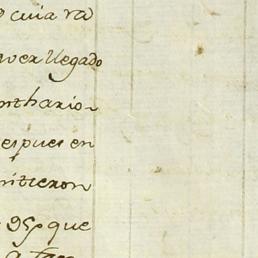 cuia va
aver llegado
ntharion
espues en
mitieron
que